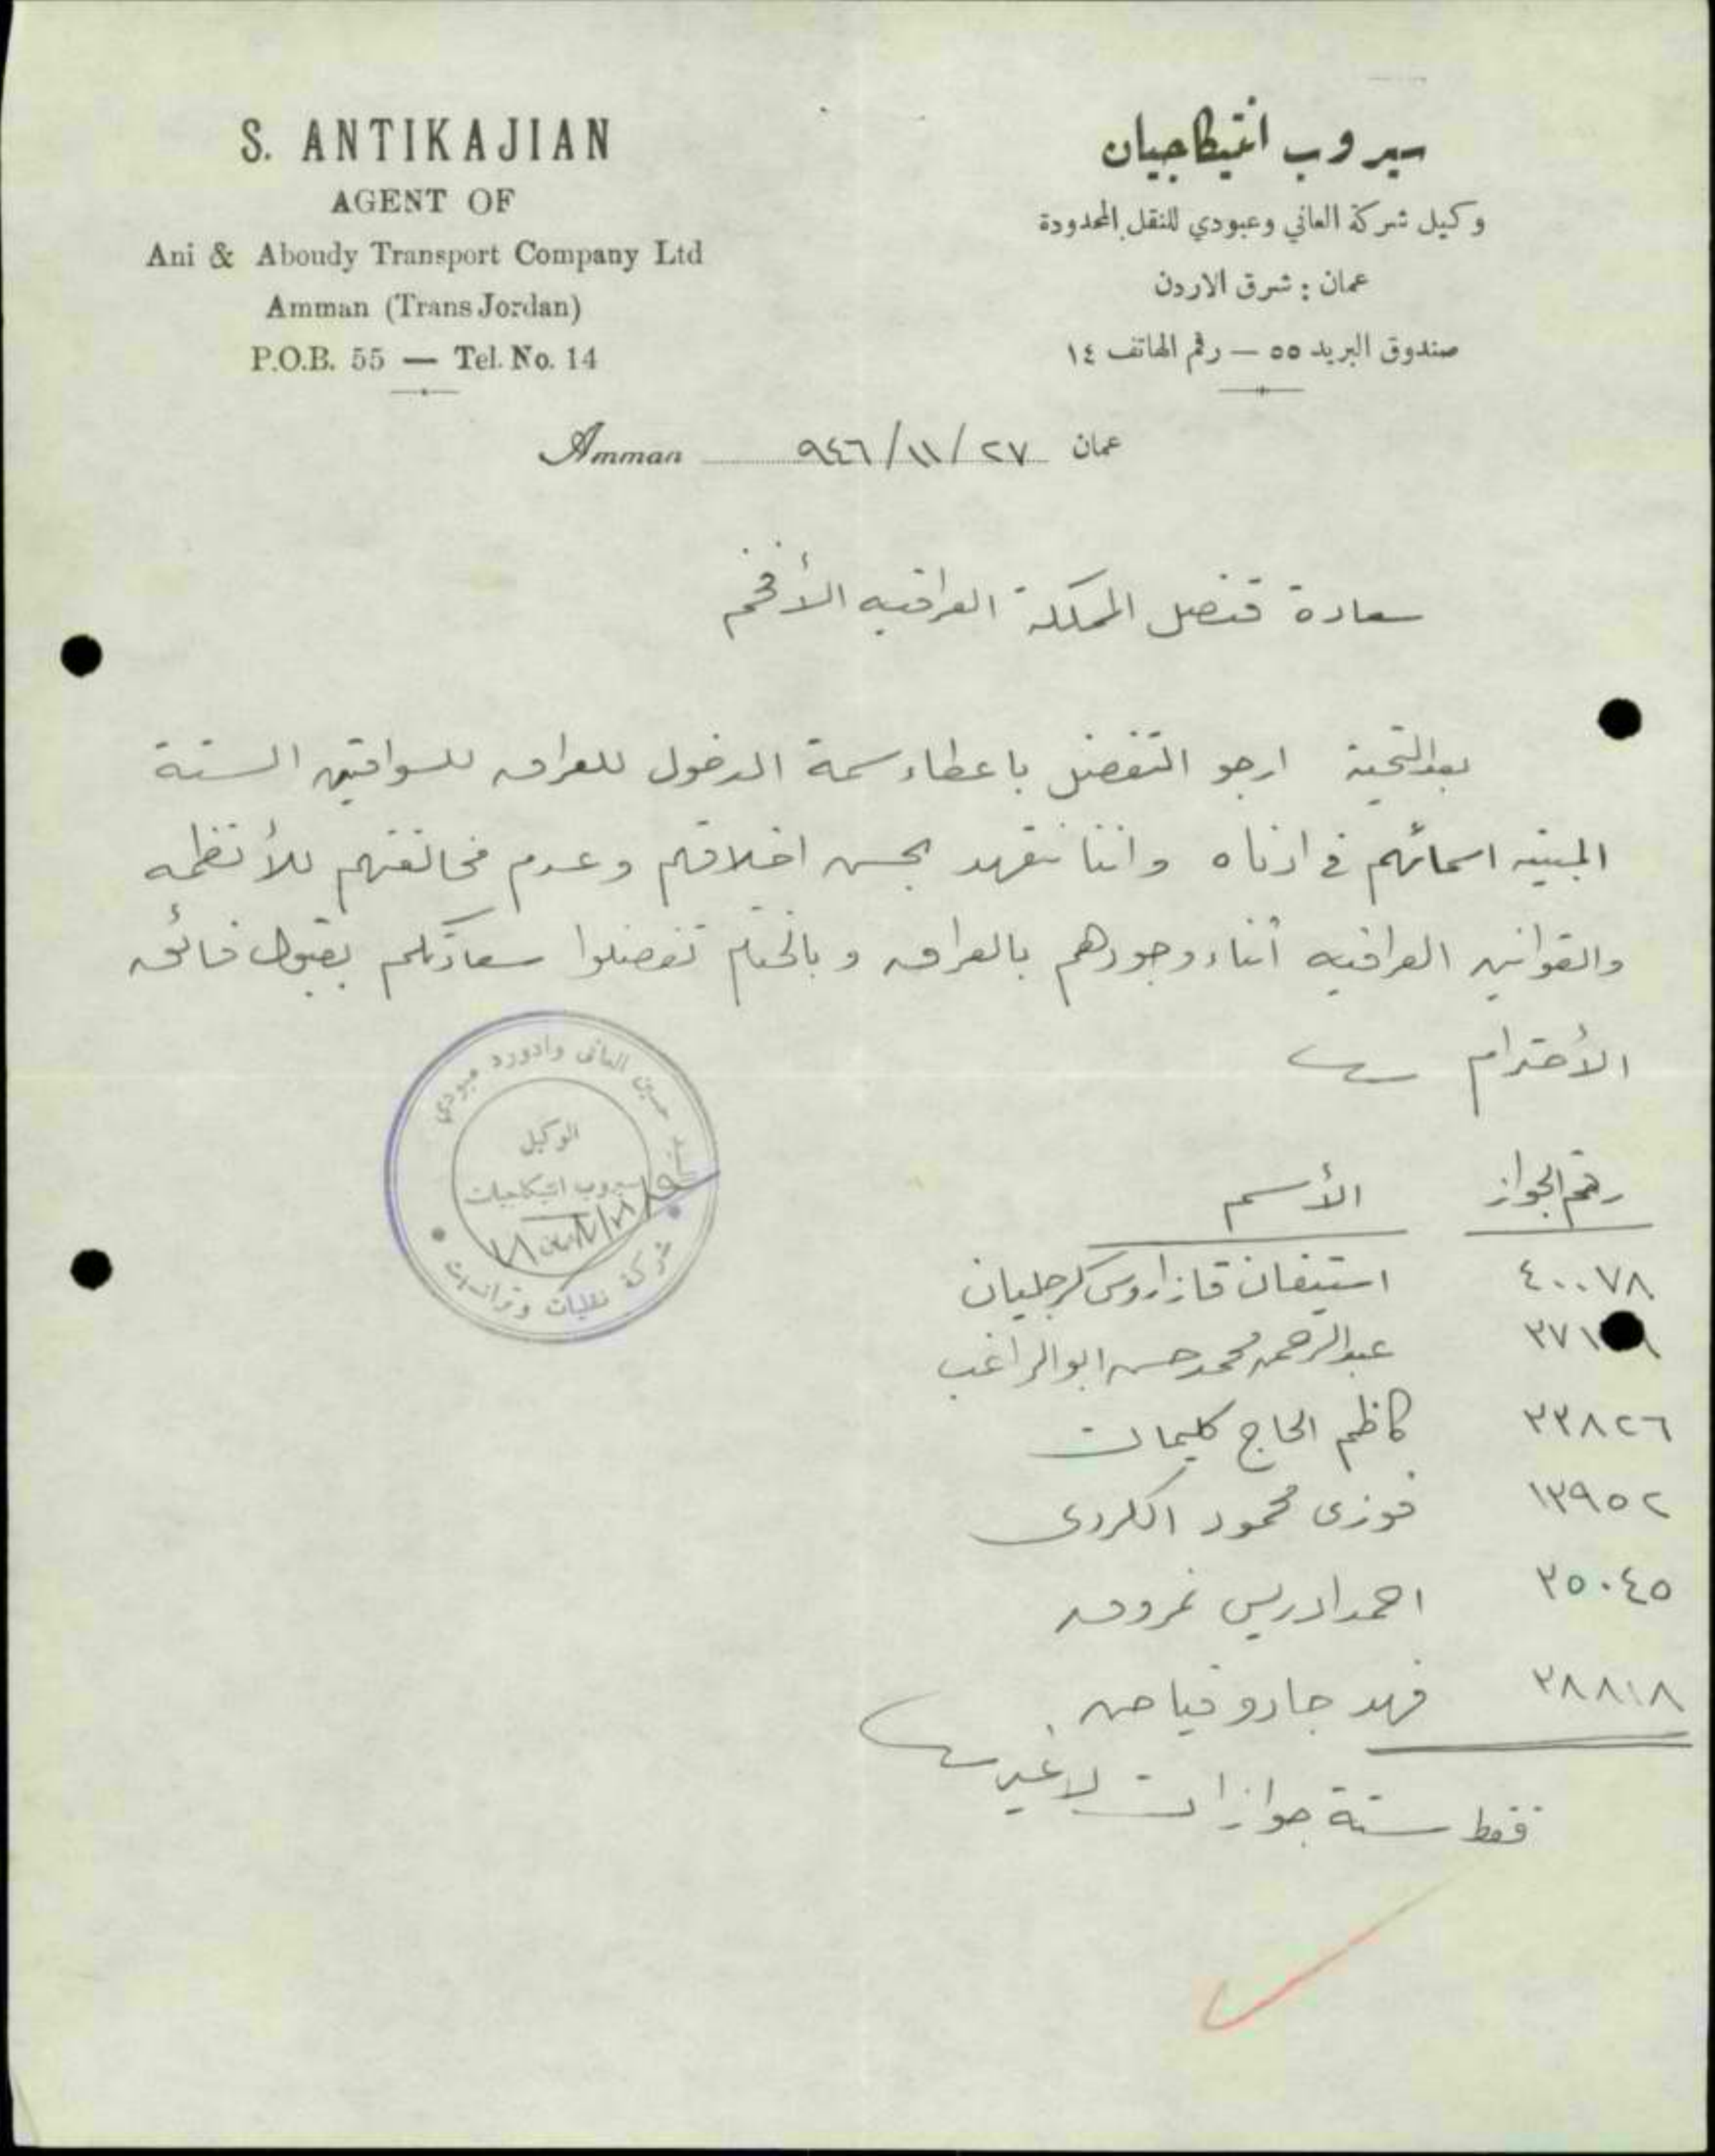 S. ANTIKAJIAN
AGENT OF
Ani & Aboudy Transport Company Ltd
Amman (Trans Jordan)
P.O.B. 55 — Tel. No. 14
سيروب انتيكاجيان
وكيل شركة العاني وعبودي للنقل المحدودة
عمان : شرق الاردن
صندوق البريد ٥٥ — رقم الهاتف ١٤
Amman ٩٤٦/١١/٢٧ عمان
سعادة قنصل المملكة العراقيه الأفخم
بعد التحية ارجو التفضل باعطاء سمة الدخول للعراق للسواقين الستة
المبينه اسمائهم في ادناه واننا نتعهد بحسن اخلاقهم وعدم مخالفتهم للأنظمه
والقوانين العراقيه أثناء وجودهم بالعراق وبالختام تفضلوا سعادتكم بقبول فائق
الأحترام
حسين العاني وادورد عبودي
الوكيل
سيروب انتيكاجيان
شركة نقليات وترانسيت
رقم الجواز الأسم
٤٠٠٧٨ استيفان قازاروس
٣٧١ عبد الرحمن محمد حسن ابو الراغب
٣٣٨٢٦ كاظم الحاج كليمات
١٣٩٥٢ فوزى محمود الكردى
٣٥٠٤٥ احمد ادريس
٣٨٨١٨ فهد جادو فياض
فقط ستة جوازات لا غير